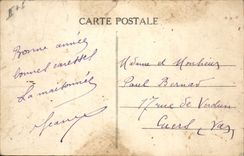 CARTE POSTALE
Bonne année
bonnes caresses
La maisonnée
Jeanne
Madame et Monsieur
Paul Bernard
17 rue de Verdun
Cuers (Var)